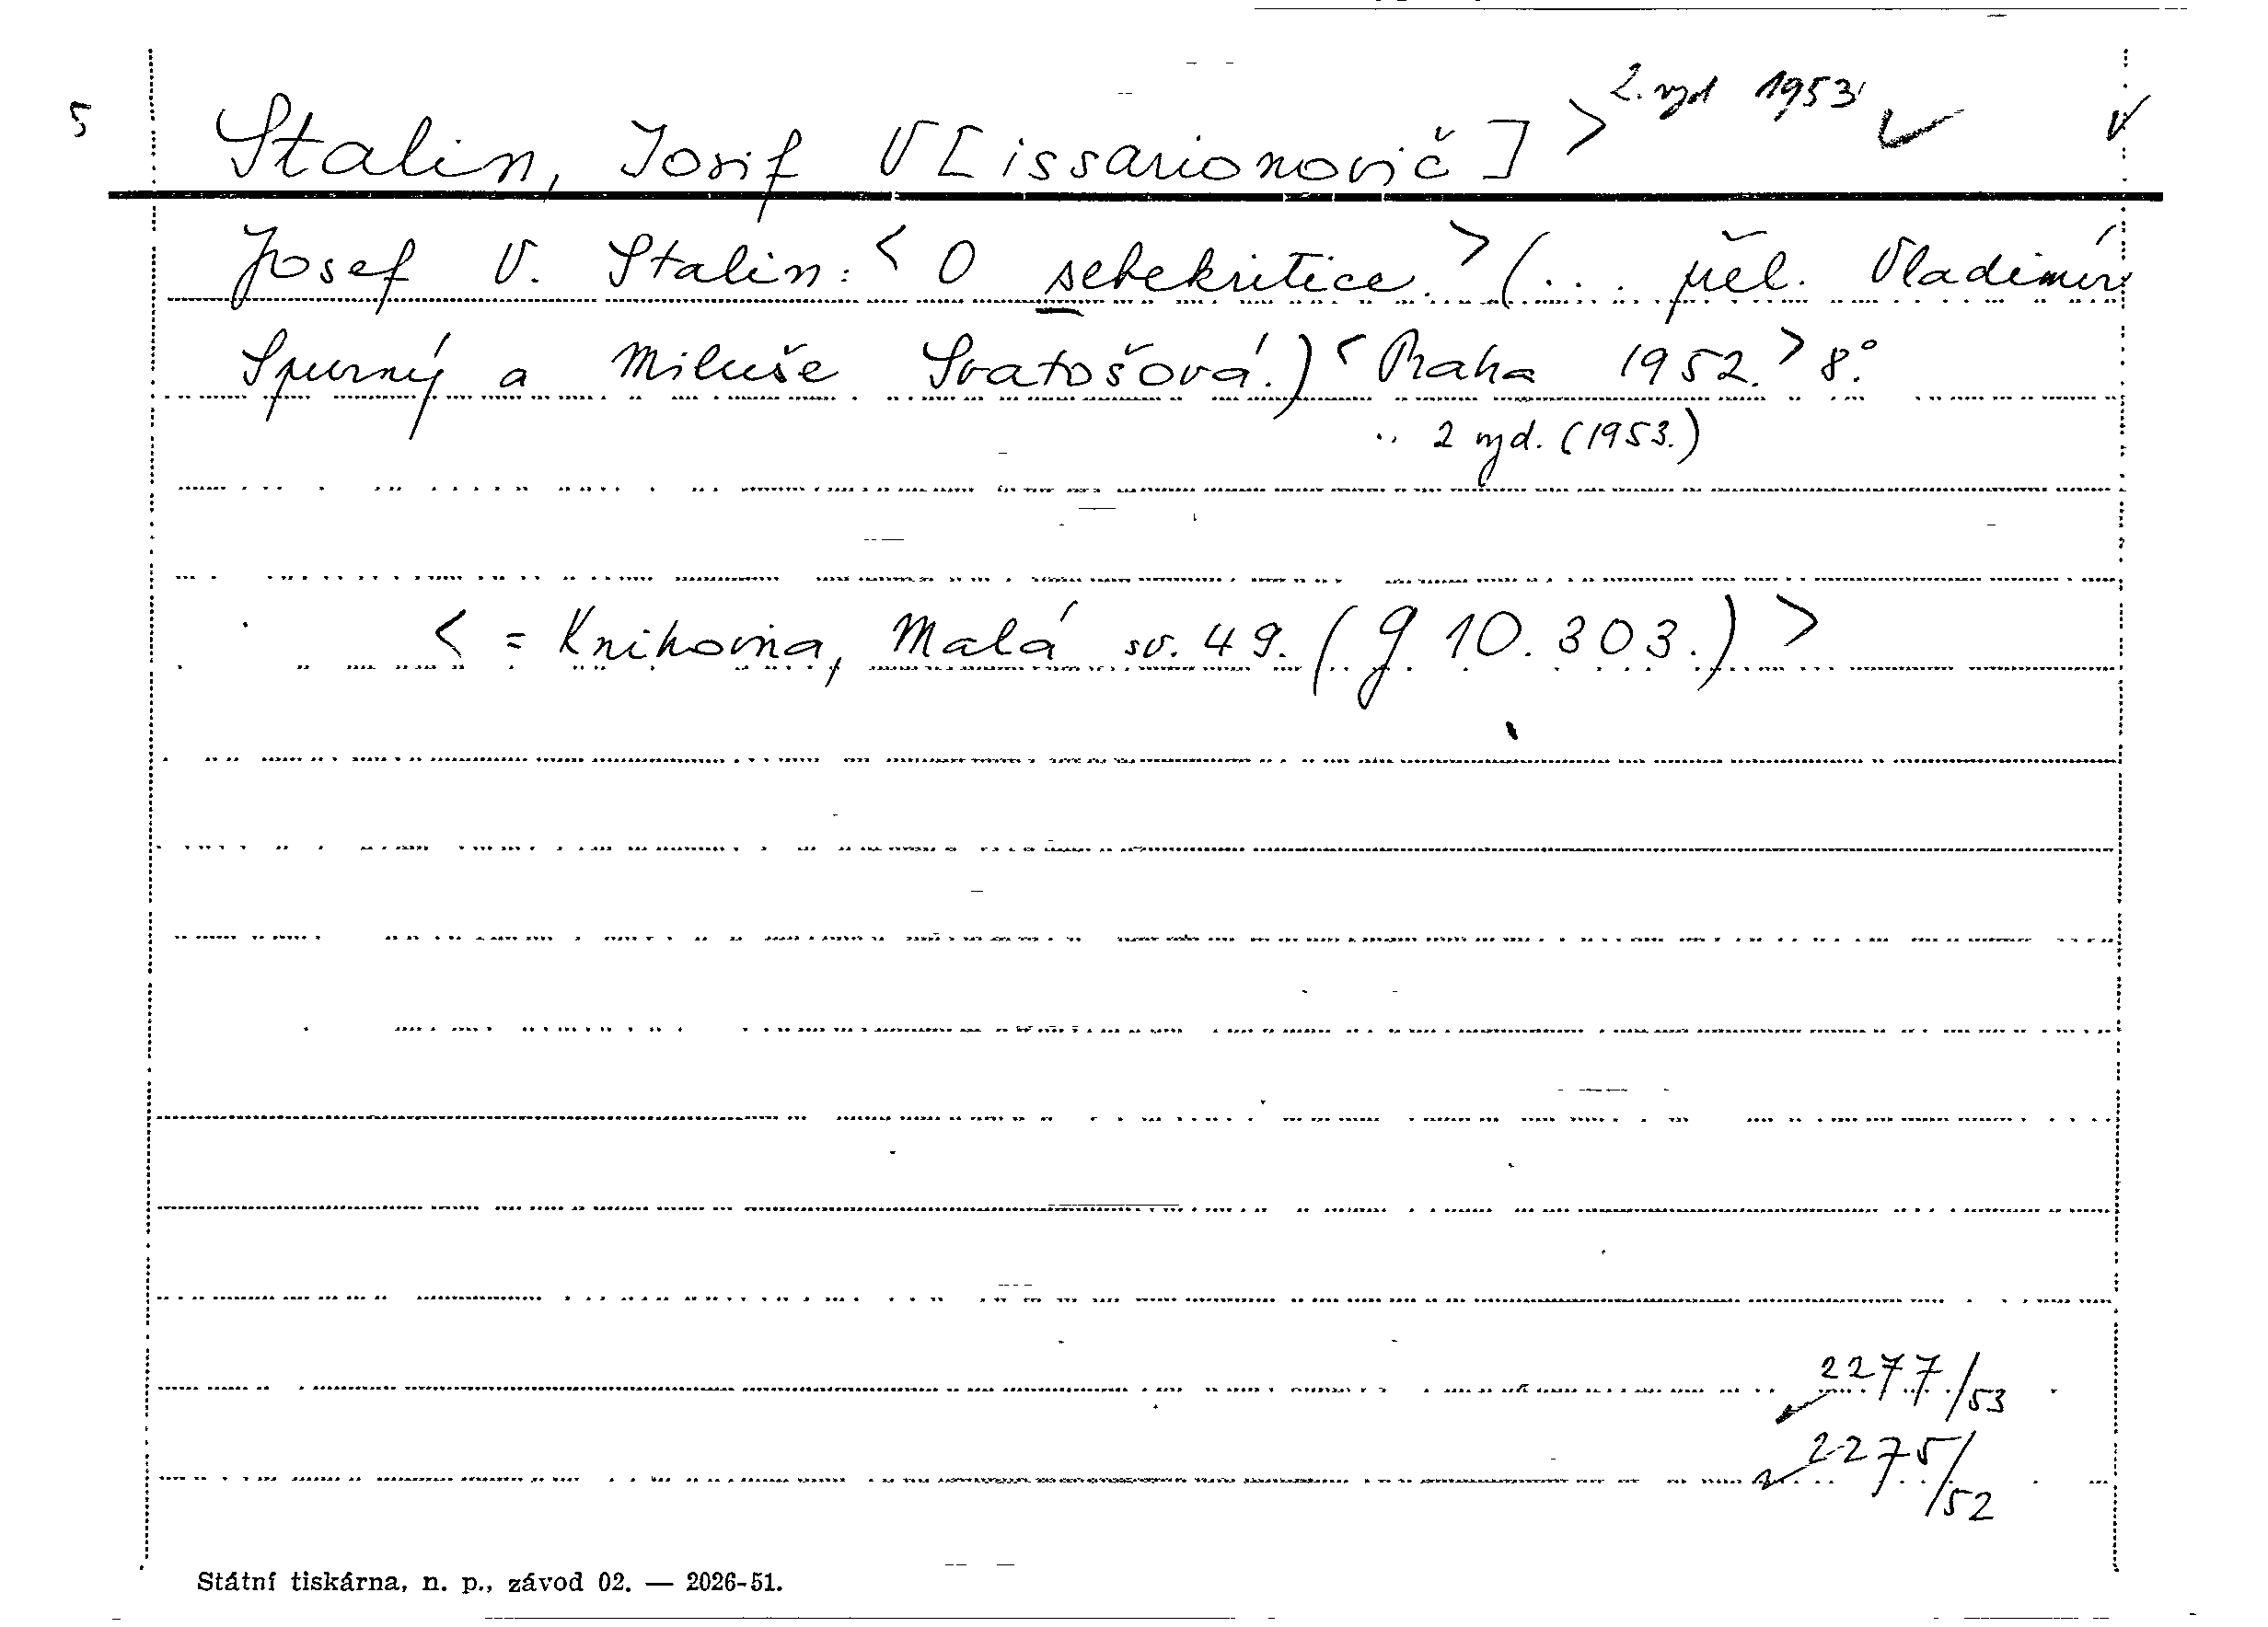 2. vyd 1953
5 Stalin, Josif V[issarionovič] >
Josef V. Stalin: < O sebekritice. > (... přel. Vladimír
Spurný a Miluše Svatošová.) < Praha 1952. > 8°.
.. 2 vyd. (1953.)
< = Knihovna, Malá sv. 49. (g 10.303.) >
2277/53
2275/52
Státní tiskárna, n. p., závod 02. — 2026-51.